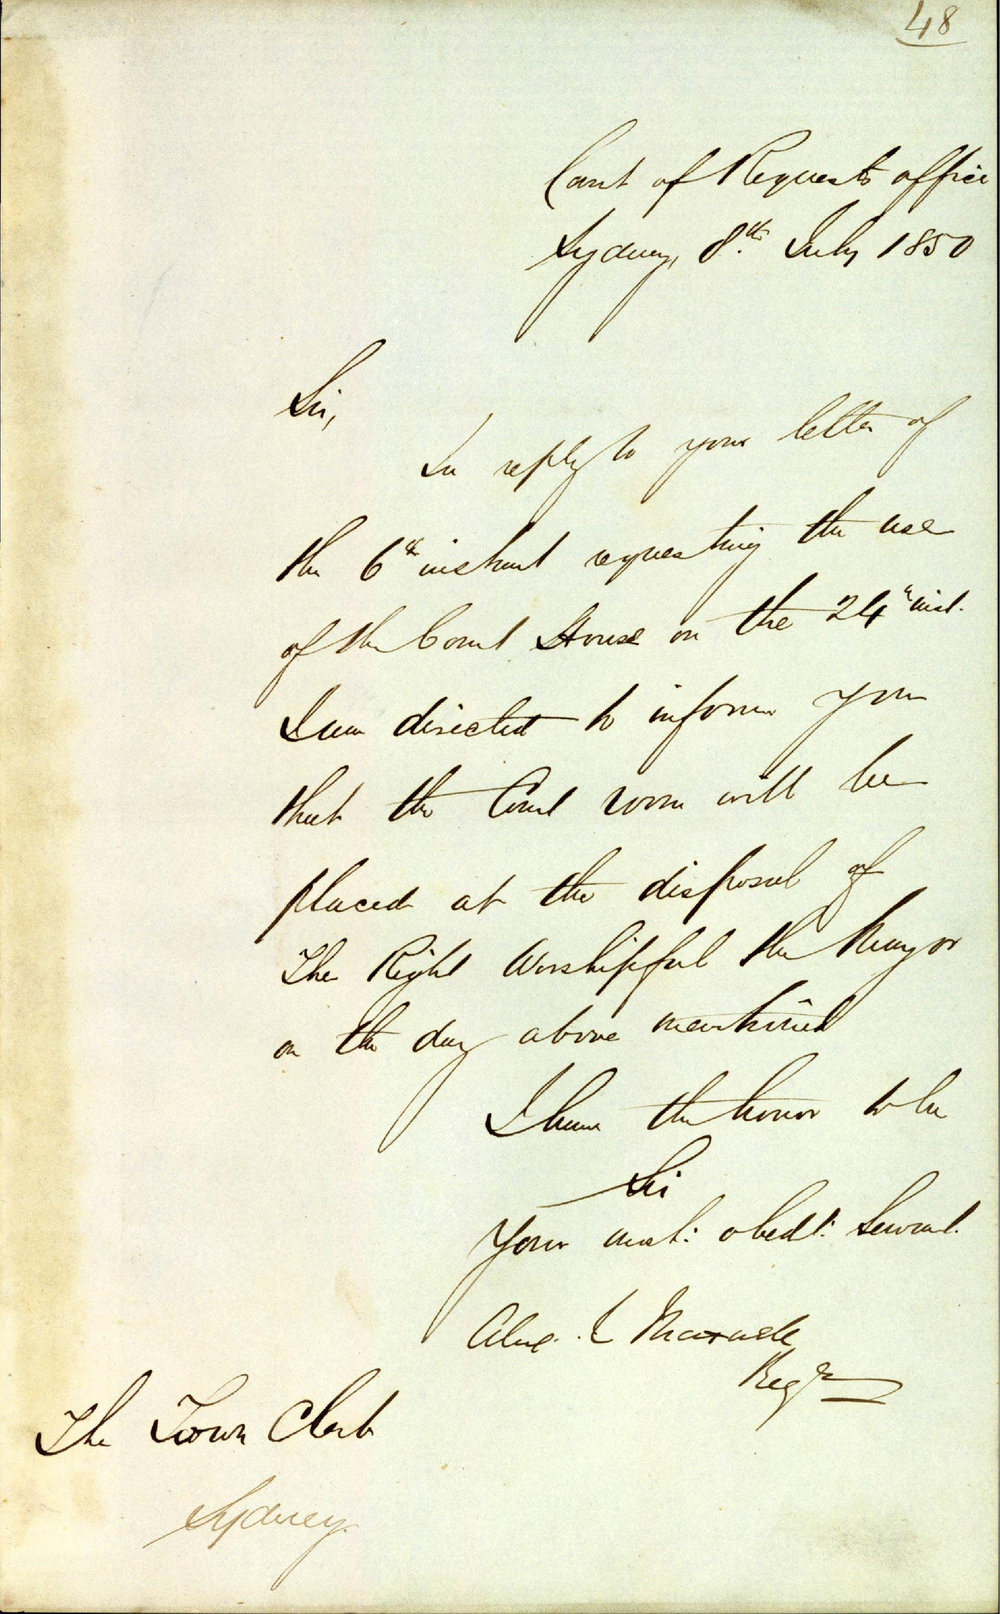 48
Court of Requests office
Sydney, 8th July 1850
Sir,
In reply to your letter of
the 6th instant requesting the use
of the Court House on the 24th inst.
I am directed to inform you
that the Court room will be
placed at the disposal of
The Right Worshipful the Mayor
on the day above mentioned
I have the honor to be
Sir
Your most: obedt: Servant.
Maxwell
Regr
The Town Clerk
Sydney.